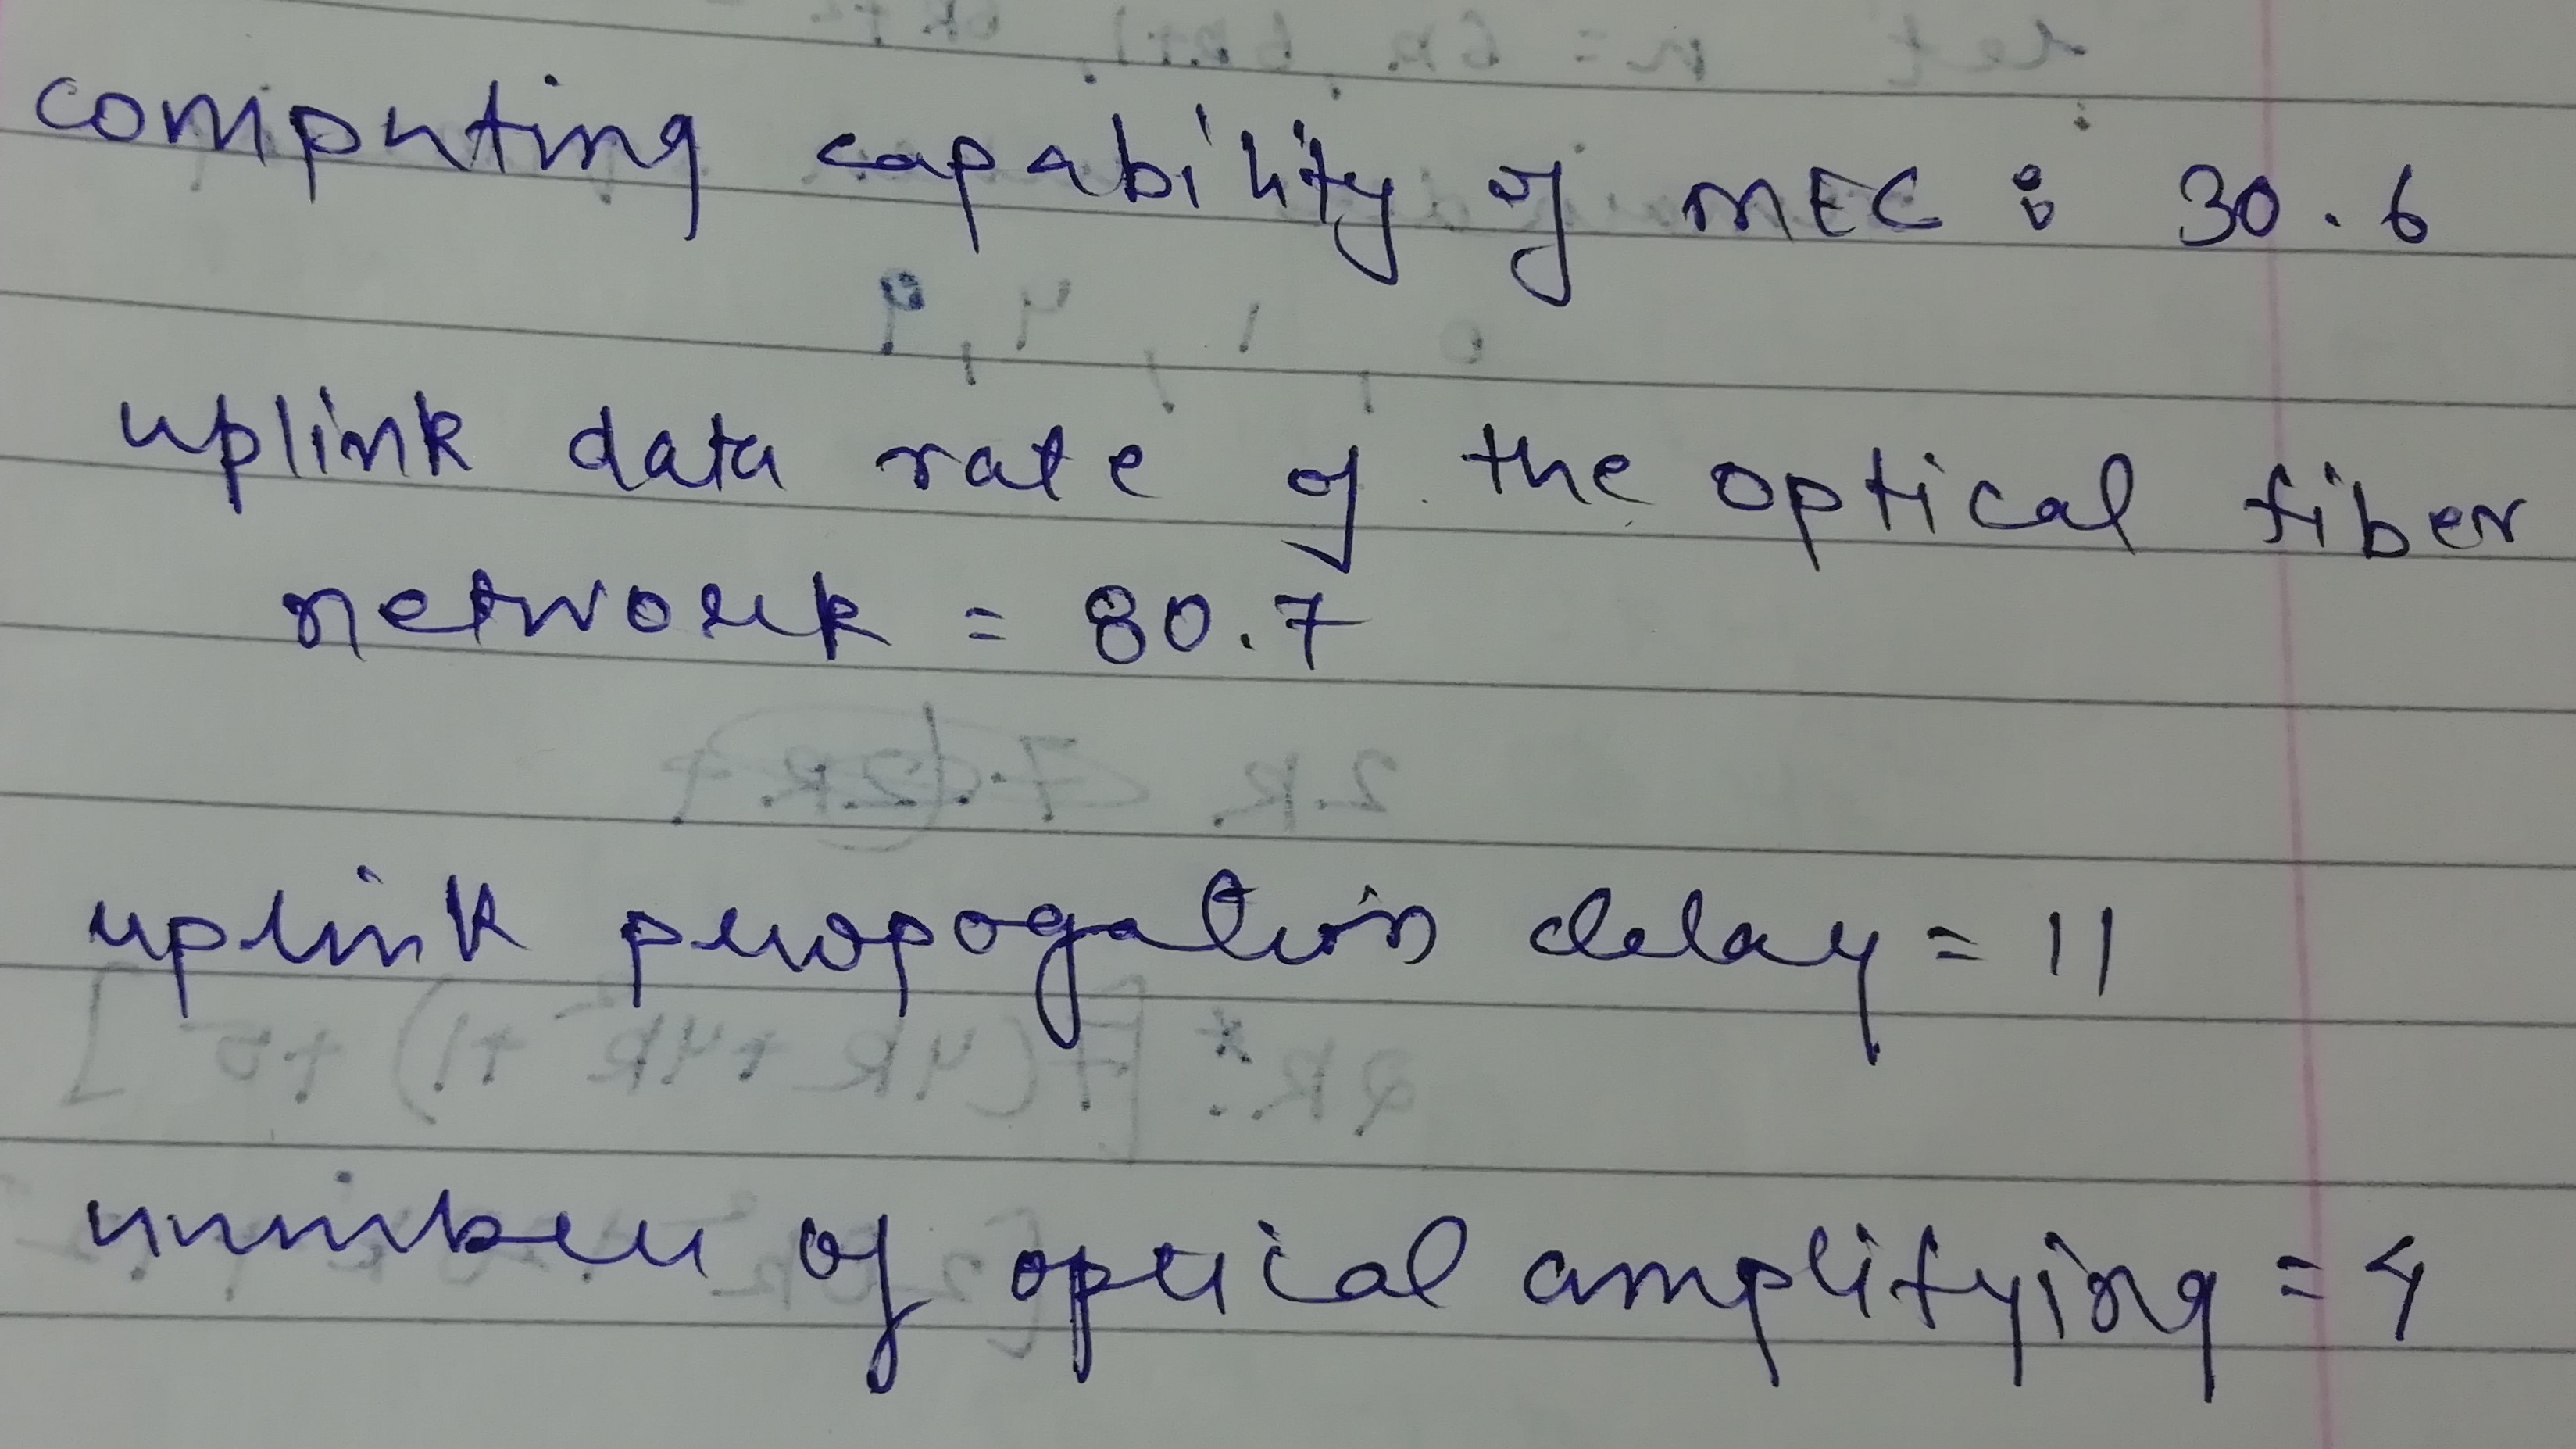 computing capability of MEC : 30.6
uplink data rate of the optical fiber
network = 80.7
uplink propogation delay = 11
number of optical amplifying = 4